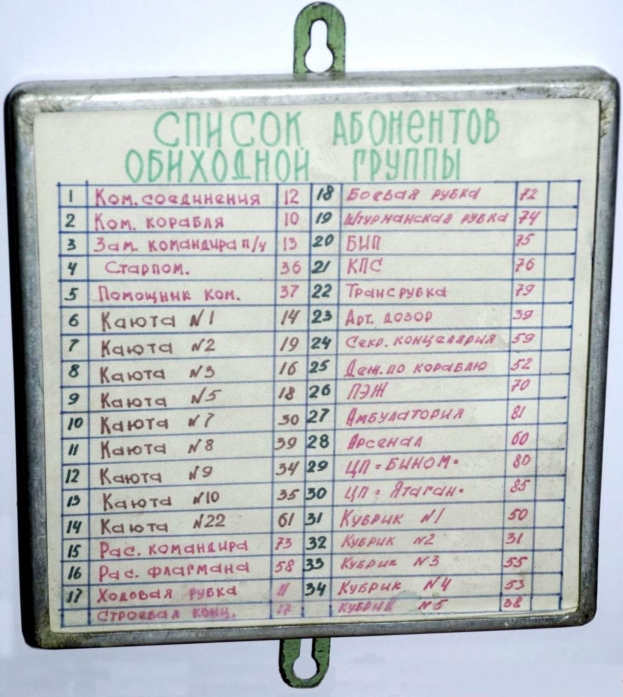 СПИСОК АБОНЕНТОВ
ОБИХОДНОЙ ГРУППЫ
1 Ком. соединения 12 18 Боевая рубка 72
2 Ком. корабля 10 19 Штурманская рубка 74
3 Зам. командира п/ч 13 20 БИП 75
4 Старпом. 36 21 КПС 76
5 Помощник ком. 37 22 Трансрубка 79
6 Каюта №1 14 23 Арт. дозор 39
7 Каюта №2 19 24 Секр. концеллярия 59
8 Каюта №3 16 25 Деж. по кораблю 52
9 Каюта №5 18 26 ПЭЖ 70
10 Каюта №7 30 27 Амбулатория 81
11 Каюта №8 39 28 Арсенал 60
12 Каюта №9 34 29 ЦП "БИНОМ" 80
13 Каюта №10 35 30 ЦП "Ятаган" 85
14 Каюта №22 61 31 Кубрик №1 50
15 Рас. командира 73 32 Кубрик №2 31
16 Рас. флагмана 58 33 Кубрик №3 55
17 Ходовая рубка 11 34 Кубрик №4 53
Строевая конц. 17 Кубрик №5 38